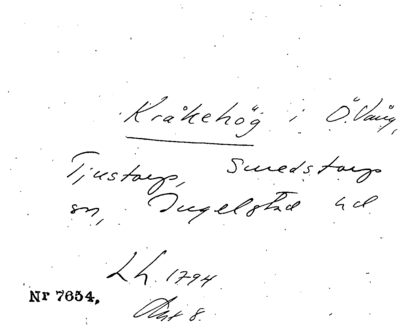 Kråkehög i Ö. Vång,
Tjustorp, Smedstorps
sn, Ingelstad hd
Lh. 1794.
Nr 7654,
Akt 8.